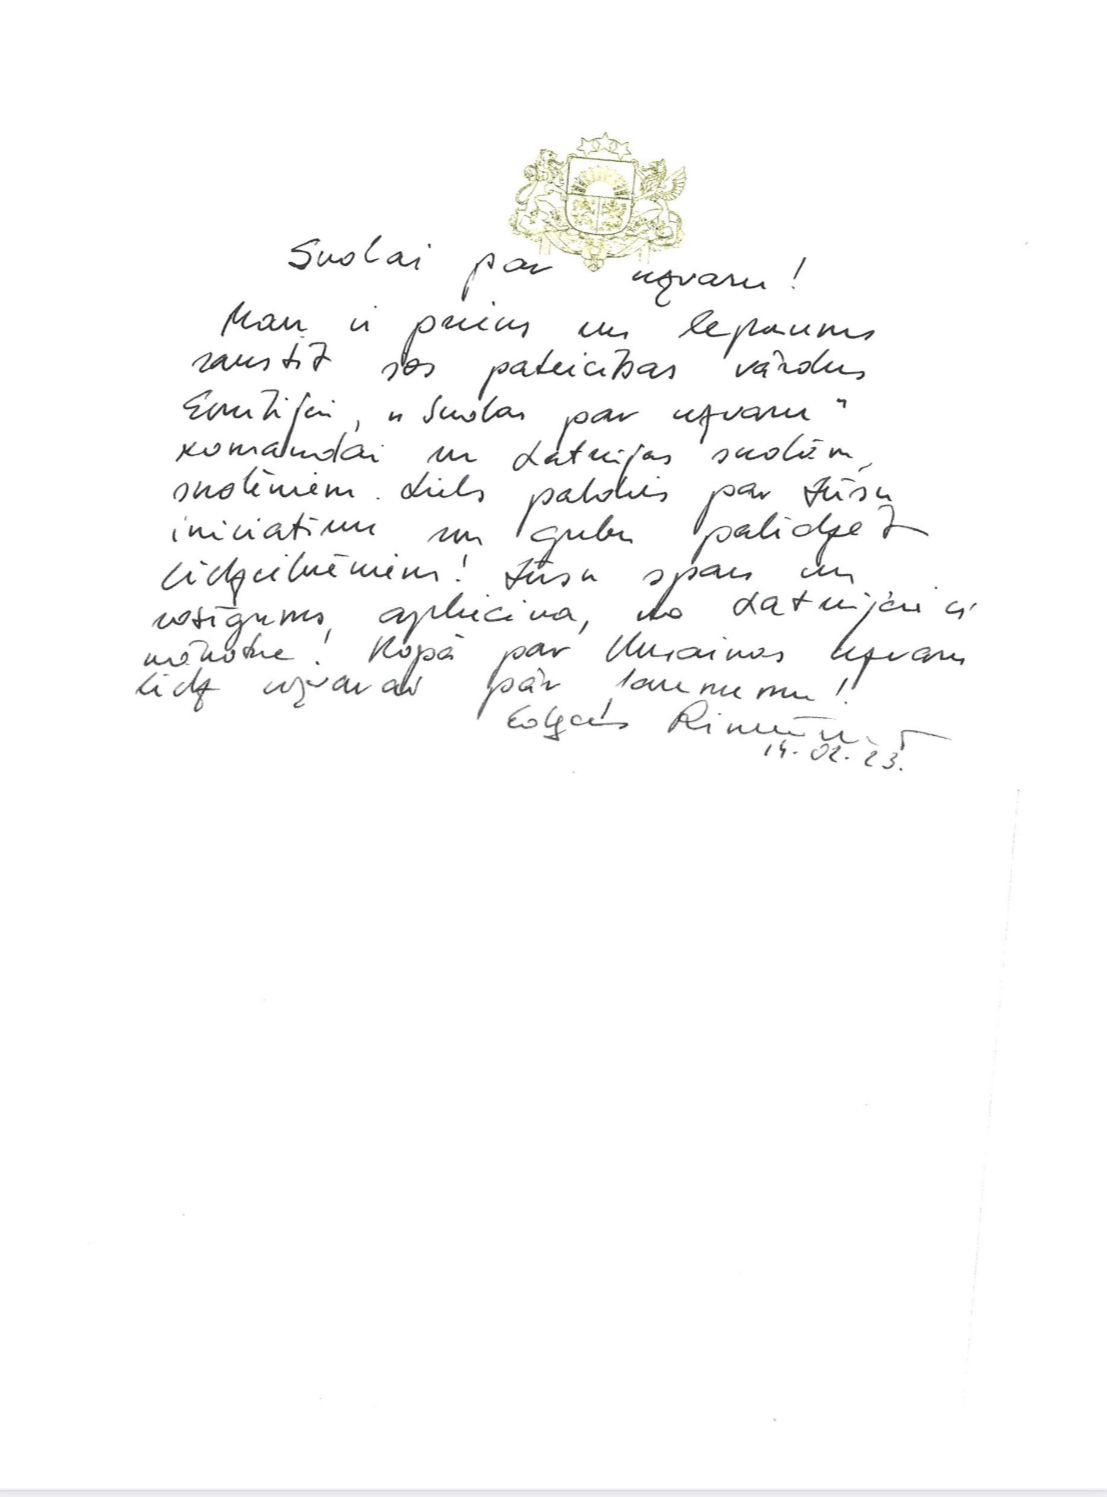 Skolai par uzvaru!
Man ir prieks un lepnums
rakstīt šos pateicības vārdus
Emīlijai, "Skolas par uzvaru"
komandai un Latvijas skolām,
skolēniem. Liels paldies par Jūsu
iniciatīvu un gribu palīdzēt
līdzcilvēkiem! Jūsu spars un
neatlaidīgums apliecina, ka Latvijai ir
nākotne! Kopā par Ukrainas uzvaru
līdz uzvarai pār ļaunumu!
Edgars Rinkēvičs
14.02.23.